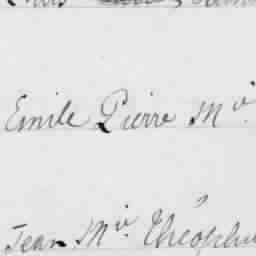 Emile Pierre Mie
Jean Mie Théophi